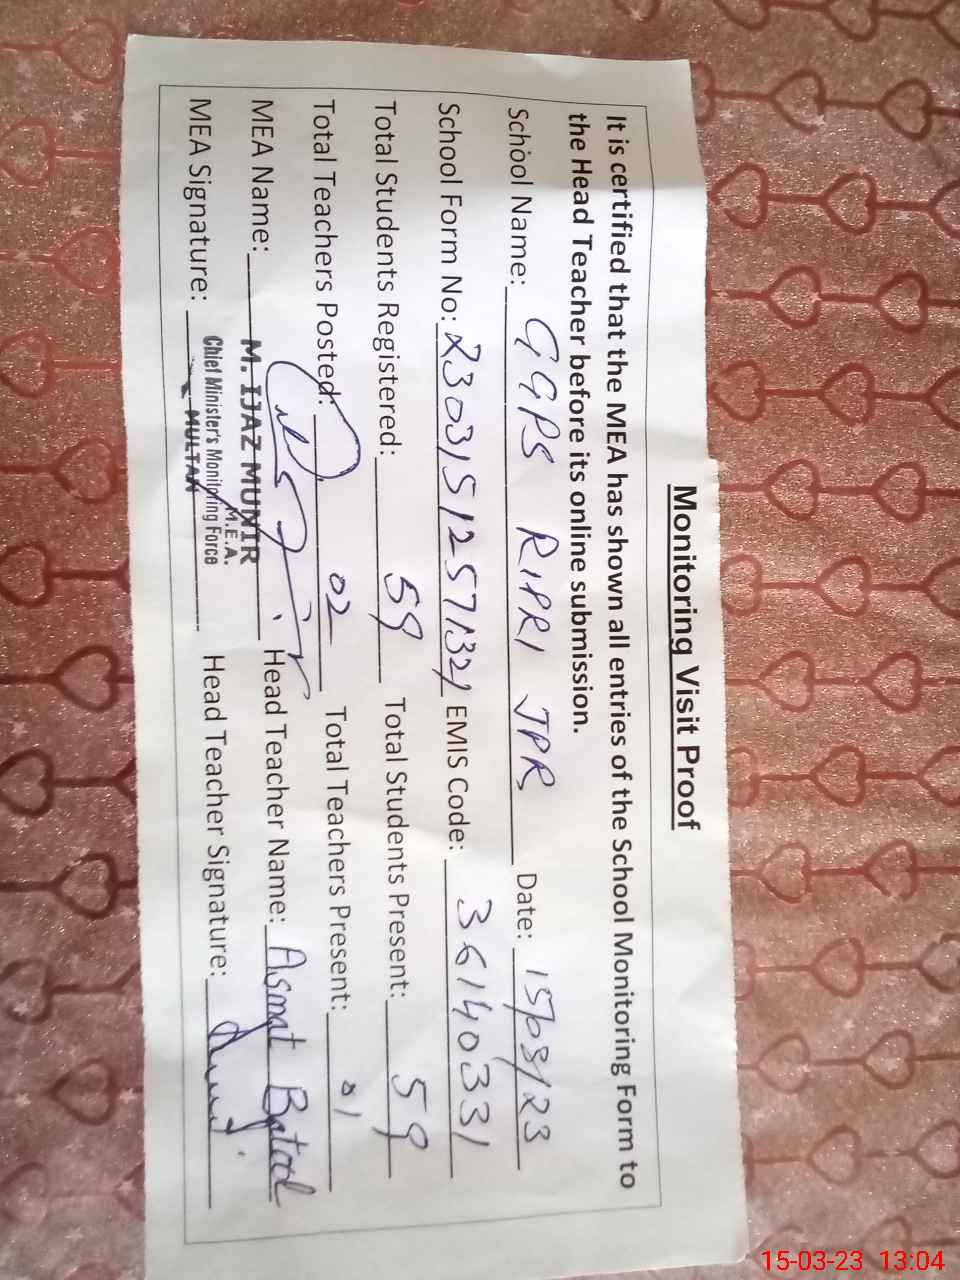 Monitoring Visit Proof
It is certified that the MEA has shown all entries of the School Monitoring Form to
the Head Teacher before its online submission.
School Name: GGPS RIPRI JPR Date: 15/03/23
School Form No: EMIS Code: 36140331
Total Students Registered: 59 Total Students Present: 59
Total Teachers Posted: 02 Total Teachers Present: 01
MEA Name: M. IJAZ MUNIR Head Teacher Name: Asmat Batool
M.E.A.
Chief Minister's Monitoring Force
MEA Signature: MULTAN Head Teacher Signature:
15-03-23 13:04